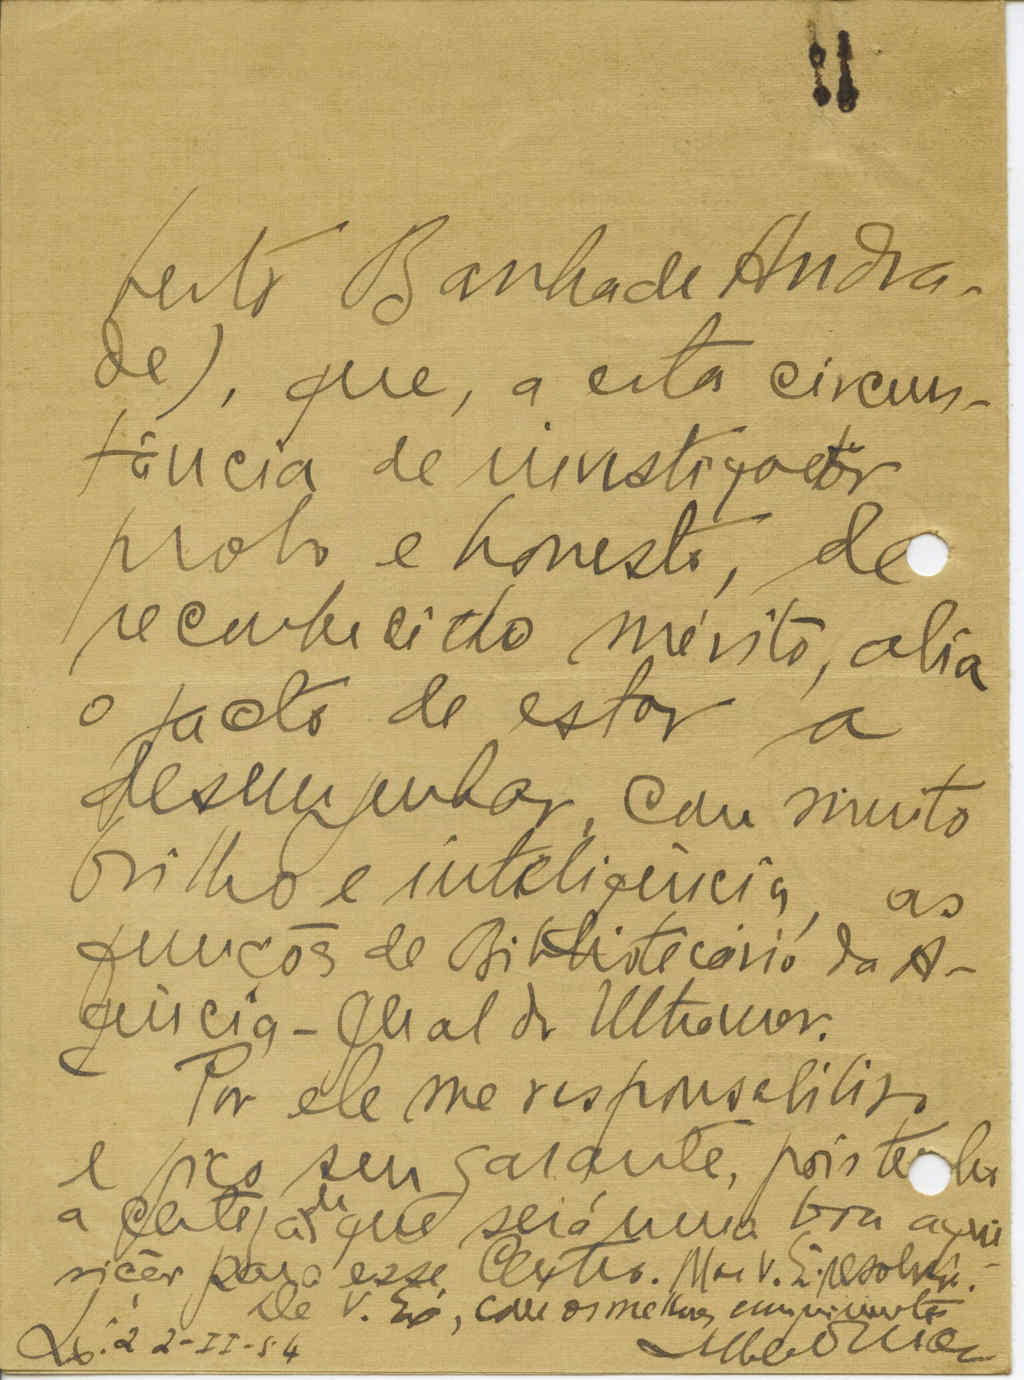 berto Banha de Andra-
de), que, a esta circuns-
tância de investigador
probo e honesto, de
reconhecido mérito, alia
o facto de estar a
desempenhar, com muito
brilho e inteligência, as
funções de Bibliotecário da A-
gência-Geral do Ultramar.
Por ele me responsabilizo
e fico seu garante, pois tenho
a certeza de que será uma boa aqui-
sição para esse Centro. Mas V. Ex. resolverá.-
De V. Exª, com os melhores cumprimentos
Lx. 22-II-54